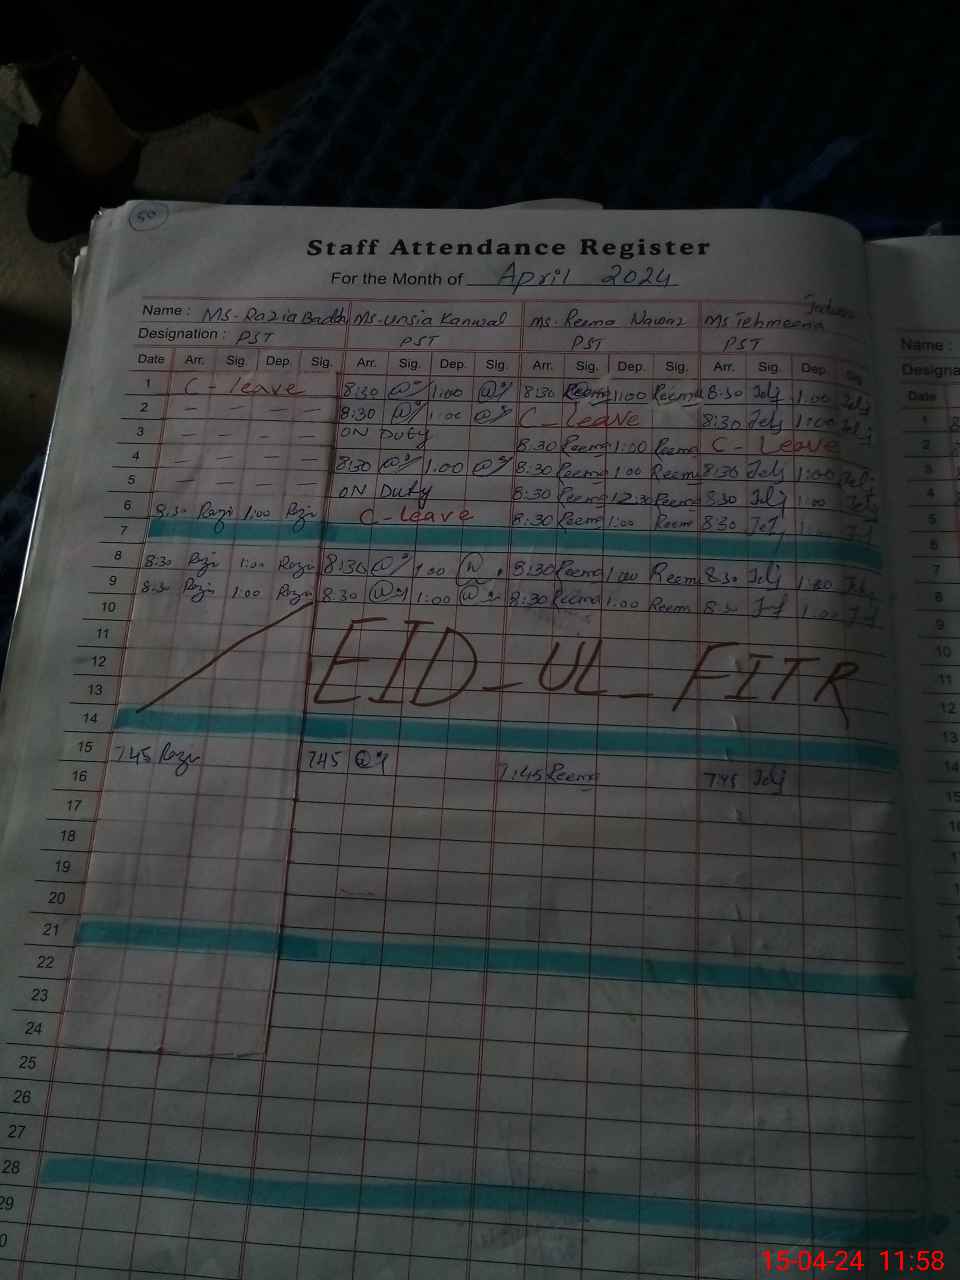 50
Staff Attendance Register
For the Month of April 2024
Name : Ms. Razia Badsh Ms. Unsia Kanwal Ms. Reema Nawaz Ms Tehmeena
Designation : PST PST PST PST
Date Arr. Sig. Dep. Sig. Arr. Sig. Dep. Sig. Arr. Sig. Dep. Sig. Arr. Sig. Dep. Sig.
1 C-leave 8:30 1:00 8:30 Reema 1:00 Reema 8:30 1:00
2 — — — — 8:30 1:00 C-Leave 8:30 1:00
3 — — — — ON Duty 8:30 Reema 1:00 Reema C-Leave
4 — — — — 8:30 1:00 8:30 Reema 1:00 Reem 8:30 1:00
5 — — — — ON Duty 8:30 Reema 12:30 Reema 8:30 1:00
6 8:30 Razi 1:00 Razi C-leave 8:30 Reem 1:00 Reem 8:30 1:00
7
8 8:30 Razi 1:00 Razi 8:30 1:00 8:30 Reema 1:00 Reem 8:30 1:00
9 8:30 Razi 1:00 Razi 8:30 1:00 8:30 Reema 1:00 Reem 8:30 1:00
10
11
12 EID-UL-FITR
13
14
15 7:45 Razi 7:45 7:45 Reema 7:45
16
17
18
19
20
21
22
23
24
25
26
27
28
29
0
Name :
Designa
Date
1
2
3
4
5
6
7
8
9
10
11
12
13
14
15
15-04-24 11:58